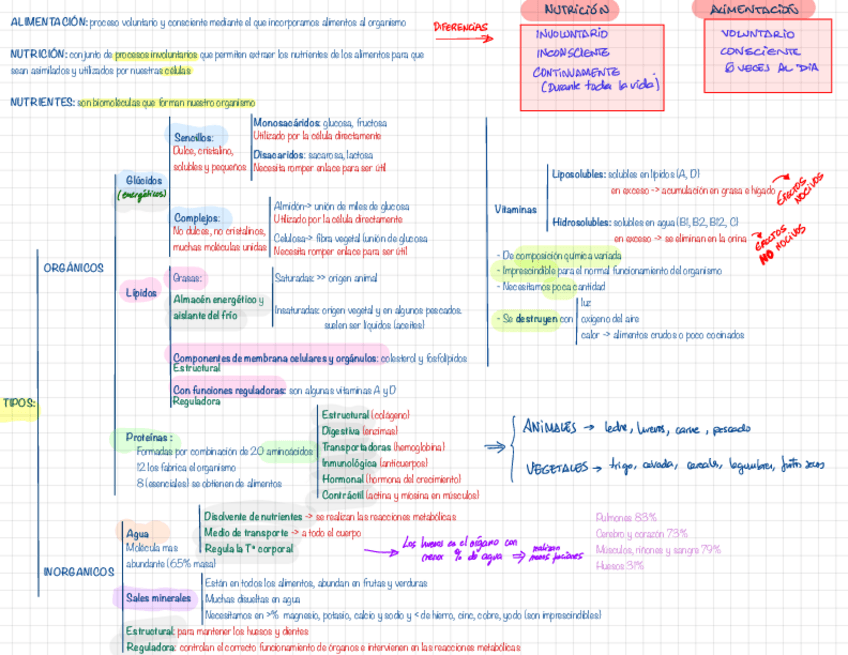 ALIMENTACIÓN: proceso voluntario y consciente mediante el que incorporamos alimentos al organismo
DIFERENCIAS
NUTRICIÓN
ALIMENTACIÓN
INVOLUNTARIO
INCONSCIENTE
CONTINUAMENTE
(Durante toda la vida)
VOLUNTARIO
CONSCIENTE
6 VECES AL DIA
NUTRICIÓN: conjunto de procesos involuntarios que permiten extraer los nutrientes de los alimentos para que
sean asimilados y utilizados por nuestras células
NUTRIENTES: son biomoléculas que forman nuestro organismo
TIPOS:
ORGÁNICOS
Glúcidos
(energéticos)
Sencillos:
Dulce, cristalino,
solubles y pequeños
Monosacáridos: glucosa, fructosa
Utilizado por la célula directamente
Disacaridos: sacarosa, lactosa
Necesita romper enlace para ser útil
Complejos:
No dulces, no cristalinos,
muchas moléculas unidas
Almidón-> unión de miles de glucosa
Utilizado por la célula directamente
Celulosa-> fibra vegetal (unión de glucosa
Necesita romper enlace para ser útil
Lípidos
Grasas:
Almacén energético y
aislante del frío
Saturadas: >> origen animal
Insaturadas: origen vegetal y en algunos pescados.
suelen ser líquidos (aceites)
Componentes de membrana celulares y orgánulos: colesterol y fosfolípidos
Estructural
Con funciones reguladoras: son algunas vitaminas A y D
Reguladora
Proteínas:
Formadas por combinación de 20 aminoácidos
12 los fabrica el organismo
8 (esenciales) se obtienen de alimentos
Estructural (colágeno)
Digestiva (enzimas)
Transportadoras (hemoglobina)
Inmunológica (anticuerpos)
Hormonal (hormona del crecimiento)
Contráctil (actina y miosina en músculos)
ANIMALES -> leche, huevos, carne, pescado
VEGETALES -> trigo, cebada, cereales, legumbres, frutos secos
Vitaminas
Liposolubles: solubles en lípidos (A, D)
en exceso -> acumulación en grasa e hígado
EFECTOS NOCIVOS
Hidrosolubles: solubles en agua (B1, B2, B12, C)
en exceso -> se eliminan en la orina
EFECTOS NO NOCIVOS
- De composición química variada
- Imprescindible para el normal funcionamiento del organismo
- Necesitamos poca cantidad
- Se destruyen con
luz
oxigeno del aire
calor -> alimentos crudos o poco cocinados
INORGANICOS
Agua
Molécula mas
abundante (65% masa)
Disolvente de nutrientes -> se realizan las reacciones metabólicas
Medio de transporte -> a todo el cuerpo
Regula la Tª corporal
Los huesos es el órgano con
menor % de agua => realizan
menos funciones
Pulmones 83%
Cerebro y corazón 73%
Músculos, riñones y sangre 79%
Huesos 31%
Sales minerales
Están en todos los alimentos, abundan en frutas y verduras
Muchas disueltas en agua
Necesitamos en >% magnesio, potasio, calcio y sodio y < de hierro, cinc, cobre, yodo (son imprescindibles)
Estructural: para mantener los huesos y dientes
Reguladora: controlan el correcto funcionamiento de órganos e intervienen en las reacciones metabólicas